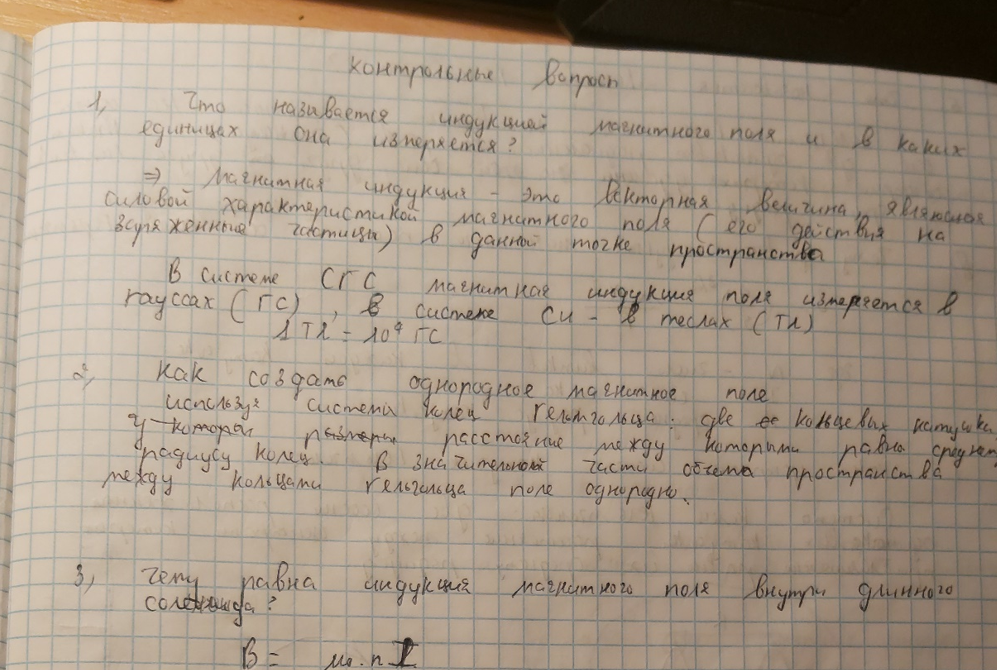 контрольные вопросы
1, Что называется индукцией магнитного поля и в каких
единицах она измеряется?
⇒ магнитная индукция - это векторная величина, являющая
силовой характеристикой магнитного поля (его действия на
заряженные частицы) в данной точке пространства
В системе СГС магнитная индукция поля измеряется в
гауссах (ГС), в системе СИ - в теслах (Тл)
1 Тл = 10⁴ ГС
2, Как создать однородное магнитное поле
используя система колец гельмгольца: две кольцевых катушка
расстояние между которыми равна среднем
радиусу колец. В значительной части объема пространства
между кольцами гельгольца поле однородно.
3, Чему равна индукция магнитного поля внутри длинного
соленоида?
B = μ₀.n I